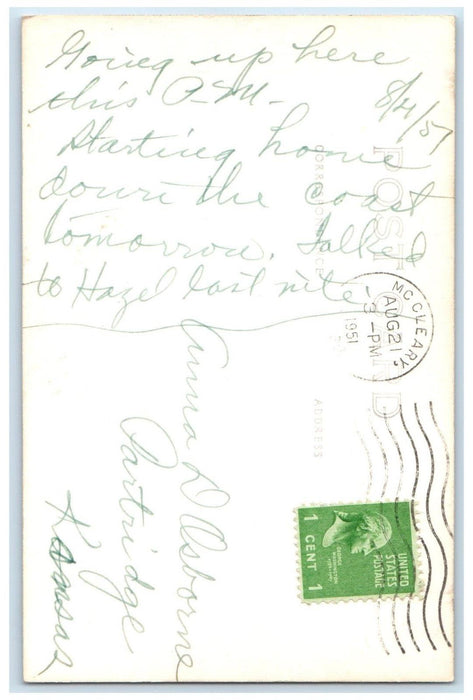 Going up here
this P.M.
Starting home
down the coast
tomorrow. Talked
to Hazel last nite
POST CARD
CORRESPONDENCE
ADDRESS
MCCLEARY,
AUG 21
3-PM
1951
Anna D Osborne
Partridge
Kansas
1 CENT 1
GEORGE
WASHINGTON
UNITED
STATES
POSTAGE